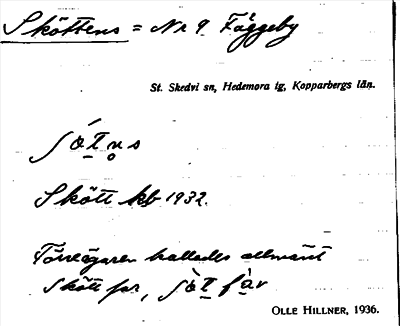 Sköttens = Nr 9 Fäggeby
St. Skedvi sn, Hedemora tg, Kopparbergs län.
Skött kb 1932.
Förre ägaren kallades allmänt
Skött far,
OLLE HILLNER, 1936.